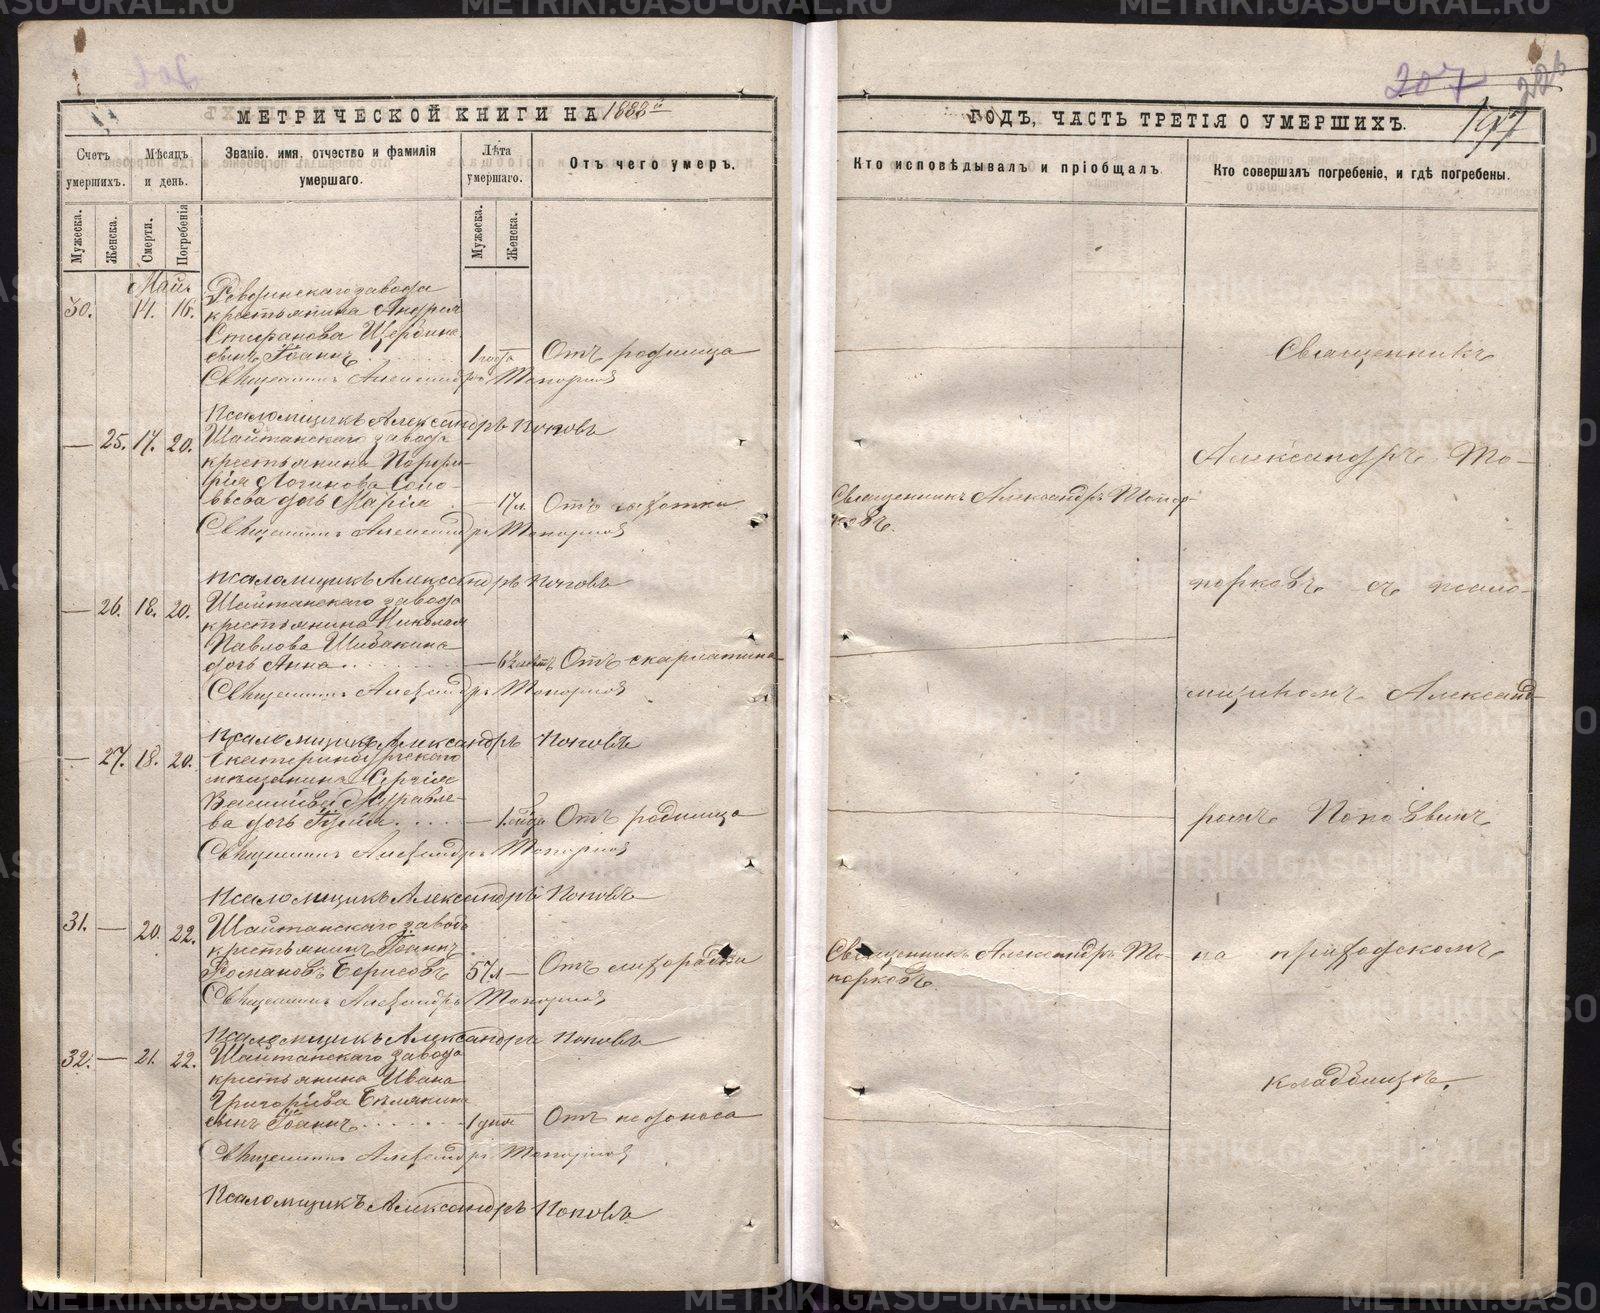 МЕТРИЧЕСКОЙ КНИГИ НА 1888 й
Счетъ умершихъ.
Мѣсяцъ и день.
Званіе, имя, отчество и фамилія умершаго.
Лѣта умершаго.
Отъ чего умеръ.
Мужеска.
Женска.
Смерти.
Погребенія
Мужеска.
Женска.
Май.
30. 14. 16.
Ревдинскаго завода
крестьянина Андрея
Стефанова Щербина
сынъ Іоаннъ 1 года Отъ родимца
Священникъ Александръ Топорковъ
Псаломщикъ Александръ Поповъ
— 25. 17. 20. Шайтанскаго завода
крестьянина Порфи-
рія Логинова Соло-
вьева дочь Марія — 17 л. Отъ чахотки
Священникъ Александръ Топорковъ
Псаломщикъ Александръ Поповъ
— 26. 18. 20. Шайтанскаго завода
крестьянина Николая
Павлова Шибакина
дочь Анна — Отъ скарлатина
Священникъ Александръ Топорковъ
Псаломщикъ Александръ Поповъ
— 27. 18. 20. Екатеринбургскаго
мѣщанина Сергія
Васильева Журавле-
ва дочь — 1 года Отъ родимца
Священникъ Александръ Топорковъ
Псаломщикъ Александръ Поповъ
31. — 20. 22. Шайтанскаго завода
крестьянинъ Іоаннъ
Романовъ Борисовъ 57 л — Отъ лихорадки
Священникъ Александръ Топорковъ
Псаломщикъ Александръ Поповъ
32. — 21. 22. Шайтанскаго завода
крестьянина Ивана
Григорьева Бѣлякина
сынъ Іоаннъ 1 дня Отъ недоноса
Священникъ Александръ Топорковъ
Псаломщикъ Александръ Поповъ
207
226
197
ГОДЪ, ЧАСТЬ ТРЕТІЯ О УМЕРШИХЪ.
Кто исповѣдывалъ и пріобщалъ.
Кто совершалъ погребеніе, и гдѣ погребены.
Священникъ Александръ Топор-
ковъ.
Священникъ Александръ То-
порковъ.
Священникъ
Александръ То-
порковъ съ псало-
мщикомъ Александ-
ромъ Поповымъ
на приходскомъ
кладбищѣ.
METRIKI.GASO-URAL.RU